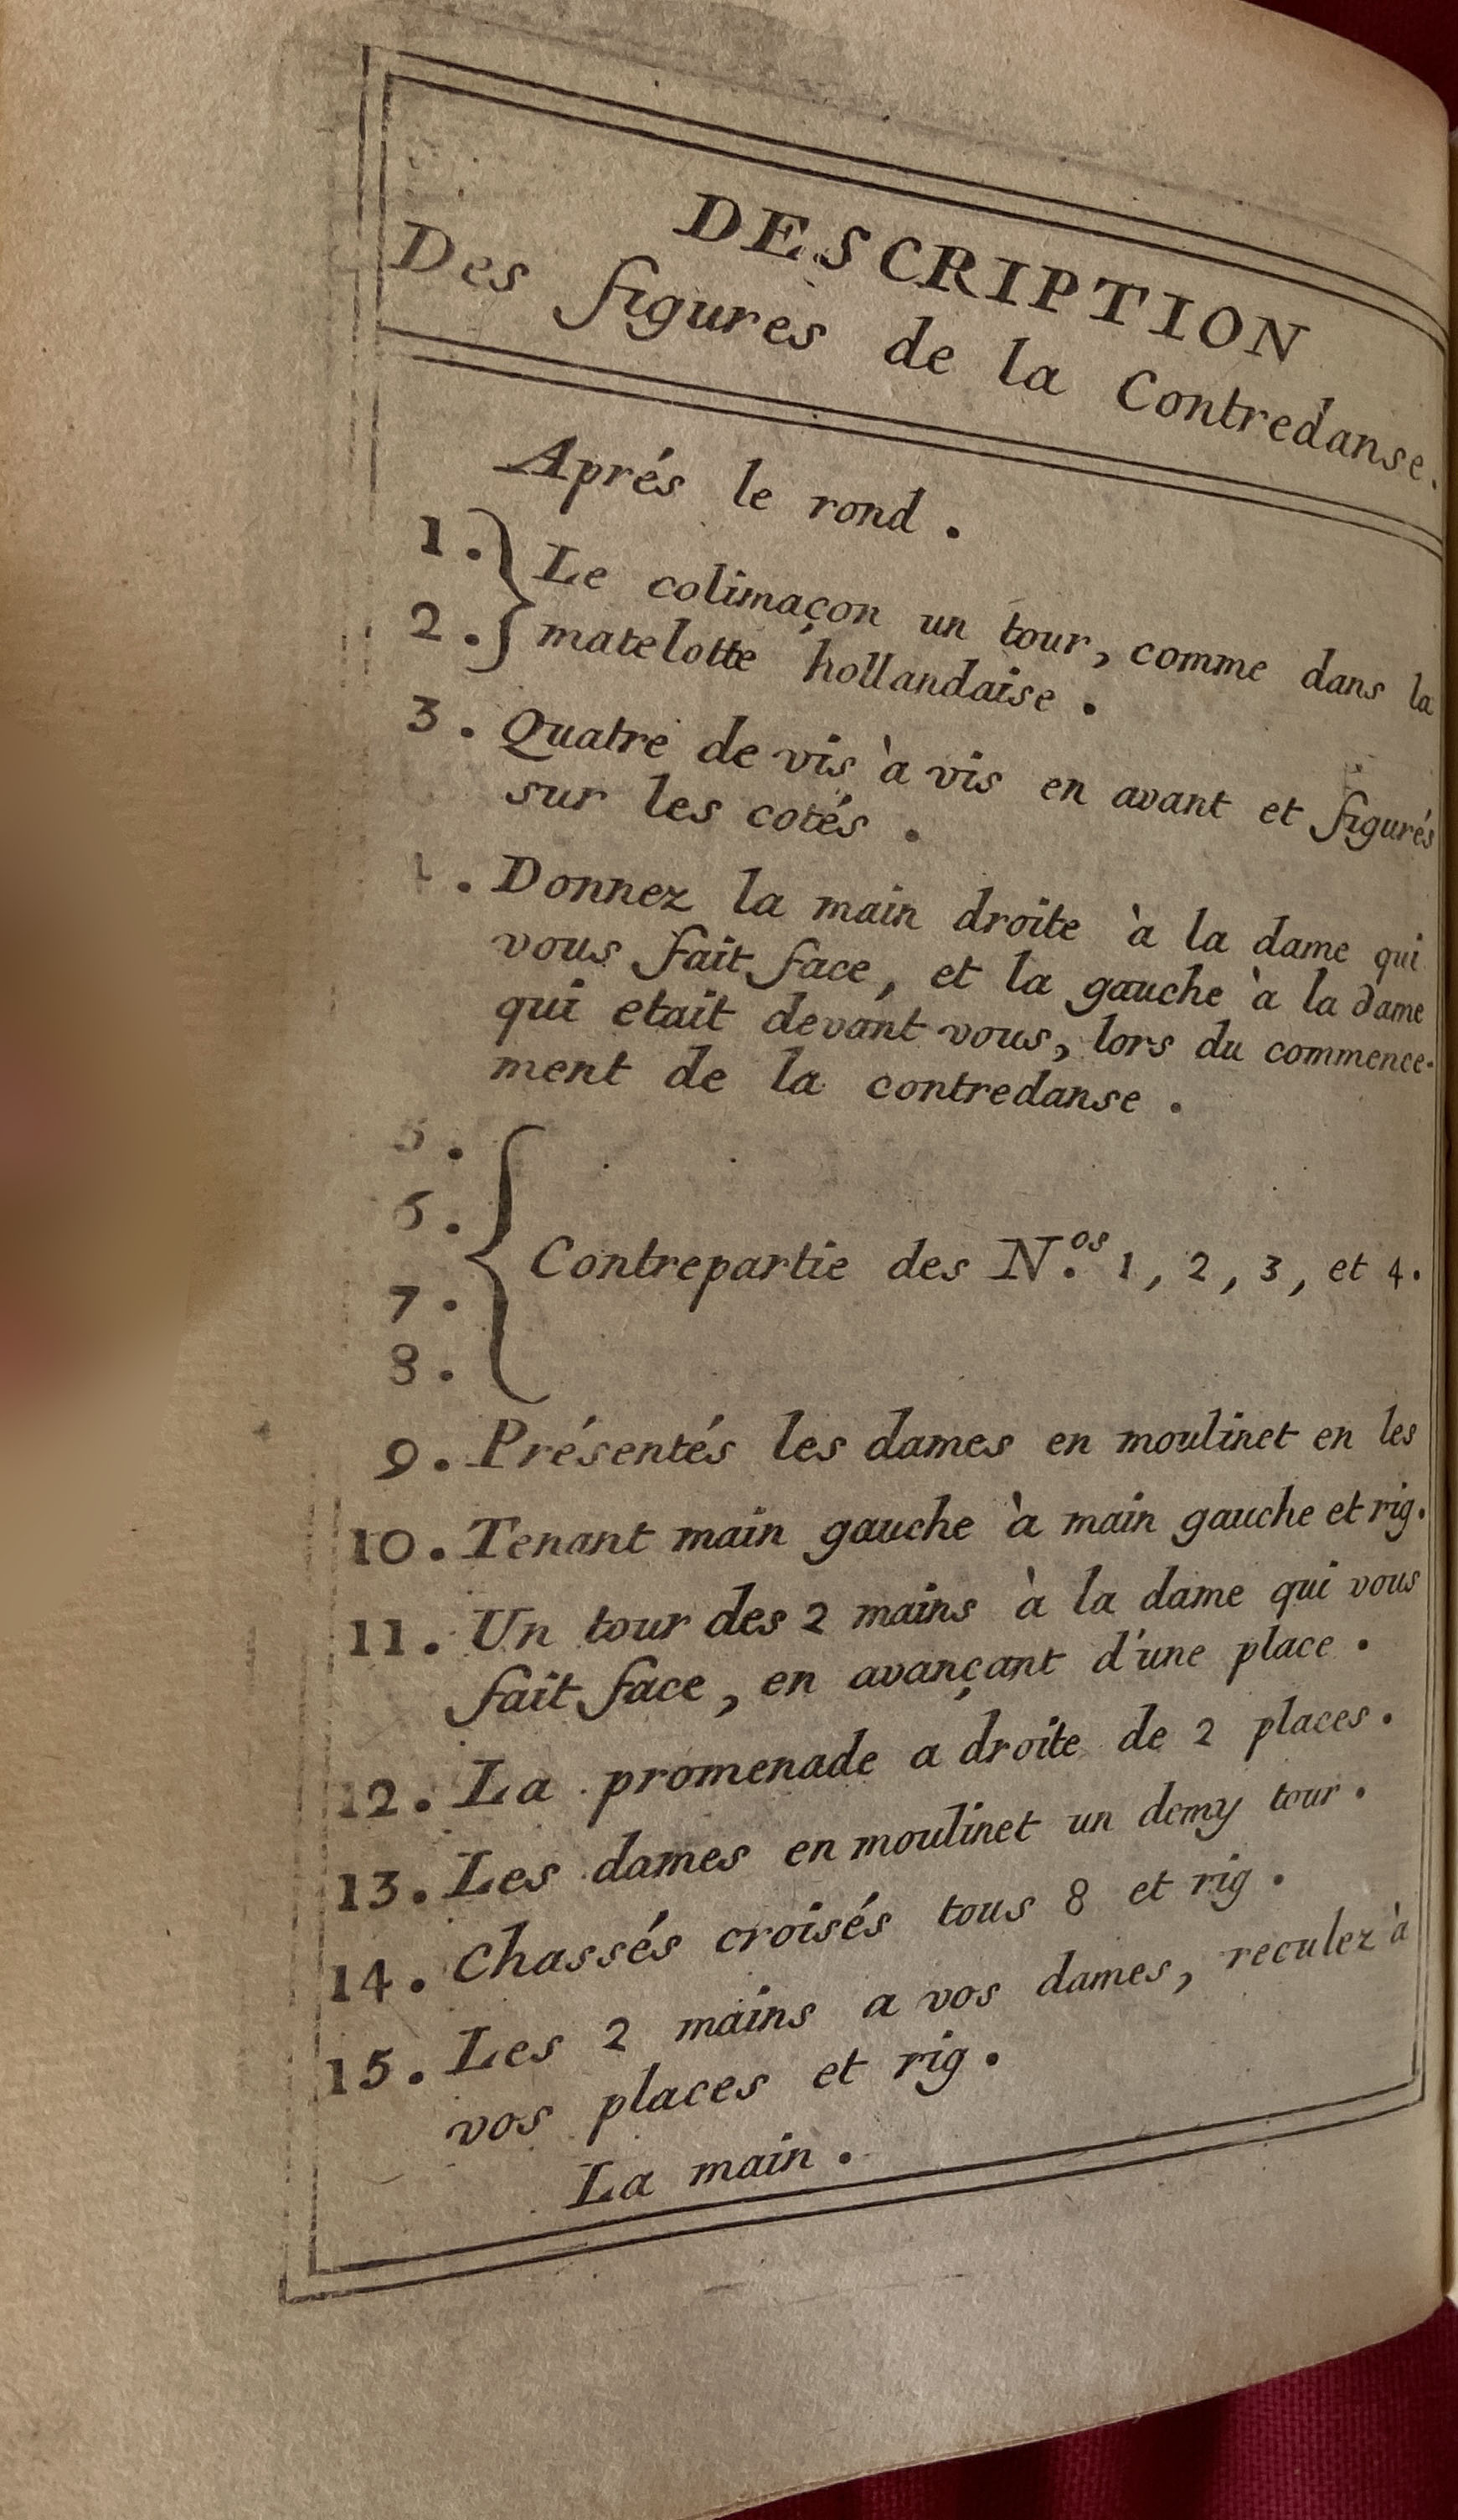 DESCRIPTION
Des figures de la Contredanse.
Aprés le rond.
1. Le colimaçon un tour, comme dans la
2. matelotte hollandaise.
3. Quatre de vis à vis en avant et figurés
sur les cotés.
4. Donnez la main droite à la dame qui
vous fait face, et la gauche à la dame
qui etait devant vous, lors du commence-
ment de la contredanse.
5.
6.
Contrepartie des N.os 1, 2, 3, et 4.
7.
8.
9. Présentés les dames en moulinet en les
10. Tenant main gauche à main gauche et rig.
11. Un tour des 2 mains à la dame qui vous
fait face, en avançant d'une place.
12. La promenade a droite de 2 places.
13. Les dames en moulinet un demy tour.
14. Chassés croisés tous 8 et rig.
15. Les 2 mains a vos dames, reculez à
vos places et rig.
La main.